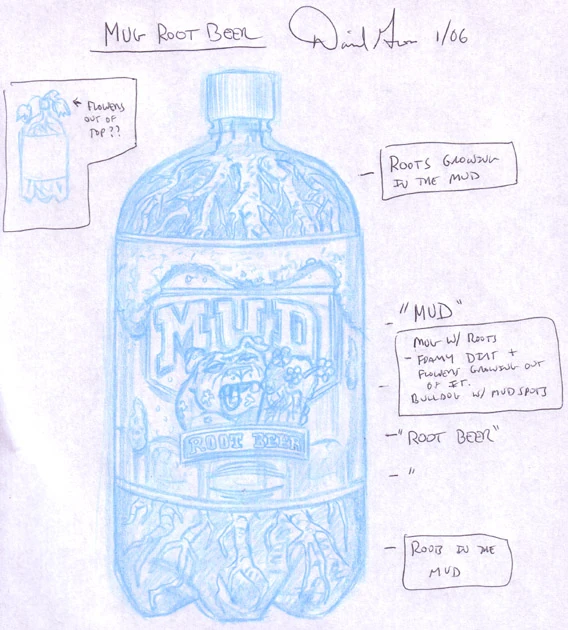 MUG ROOT BEER
1/06
← FLOWERS
OUT OF
TOP??
ROOTS GROWING
IN THE MUD
MUD
ROOT BEER
- "MUD"
MUG W/ ROOTS
- FOAMY DIRT +
FLOWERS GROWING OUT
OF IT.
BULLDOG W/ MUD SPOTS
- "ROOT BEER"
- "
- ROOTS IN THE
MUD